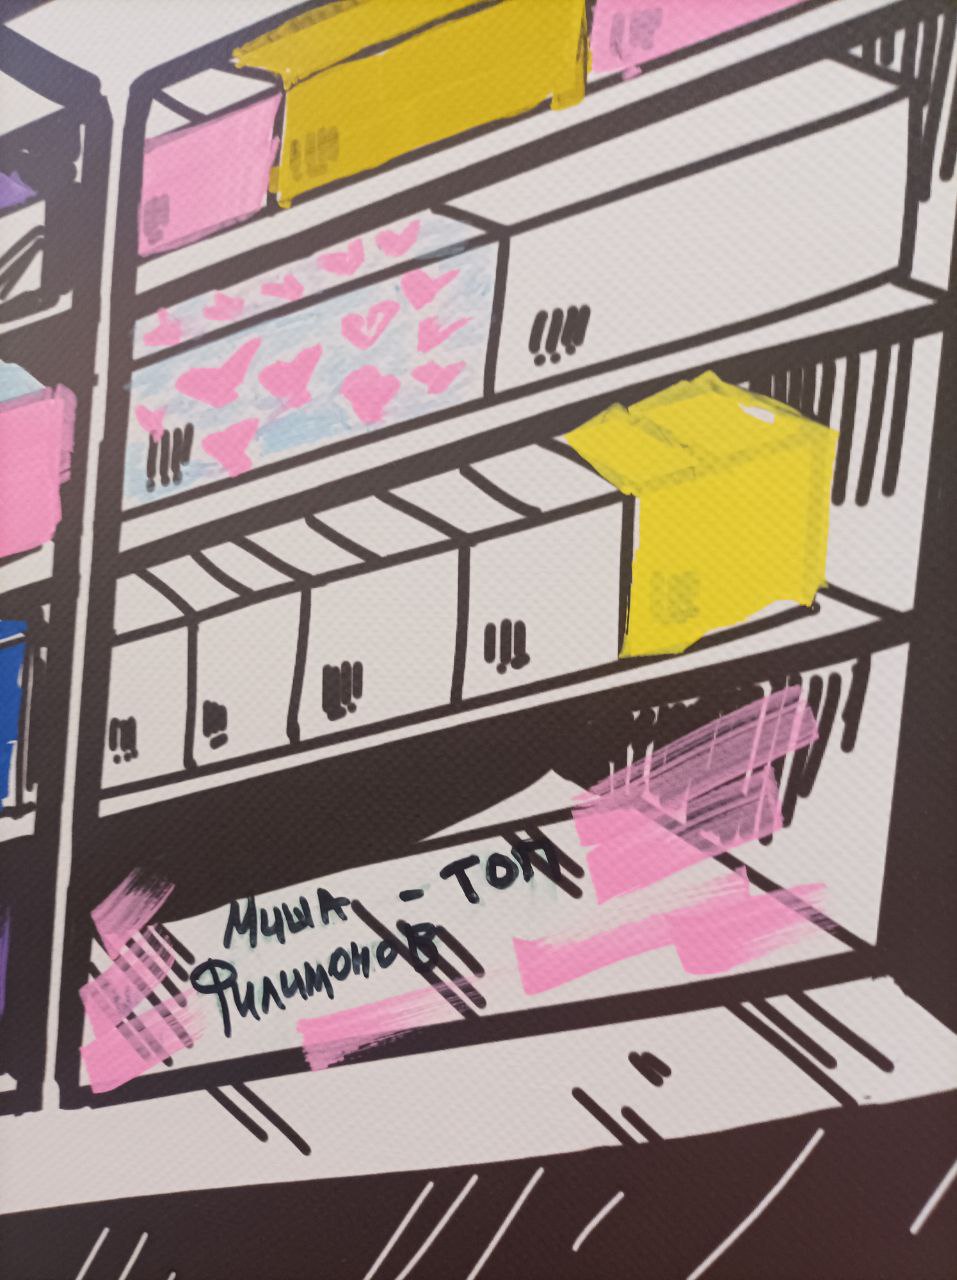 Миша - ТОП
Филимонов